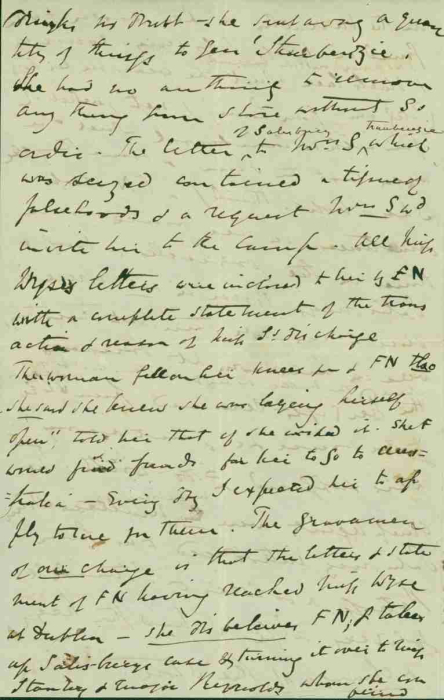 drinks no doubt - she sent away a quan
tity of things to Gen¹ Storks
She had no authority to remove
any thing from store without S's
order. The letter, of Salisbury to Mrs S, which
was seized contained a tissue of
falsehoods & a request Mrs S wd
invite her to the Camp. All Miss
letters were inclosed to her by FN
with a complete statement of the trans
action & reason of Miss S's discharge
The woman fell on her knees & FN tho
she said she knew she was laying herself
open" told her that if she wished it she
would find funds for her to go to Aus-
=tralia - I expected her to ap
ply to me for them. The gravamen
of our charge is that the letters & state
ment of FN having reached Miss Wyse
at Dublin - she disbelieves FN, & takes
up Salisbury's case & turning it over to Miss
Stanley & Major Reynolds whom she can